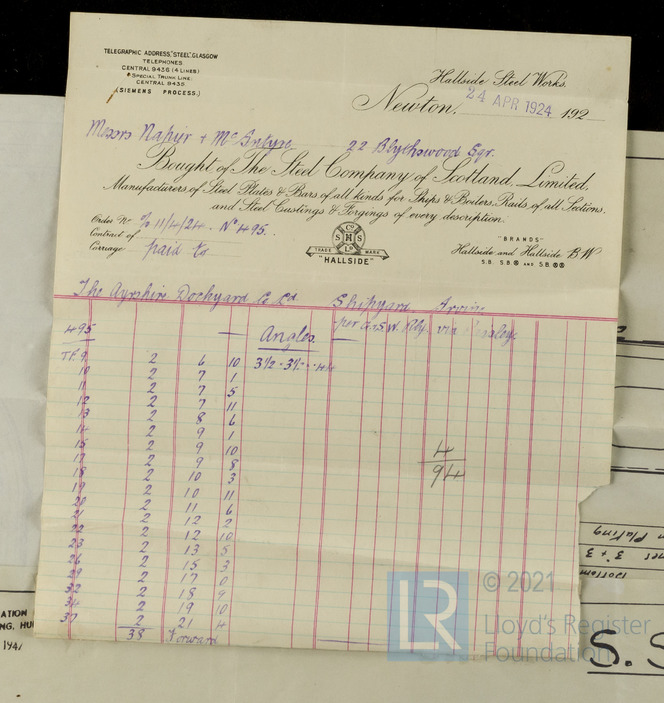 TELEGRAPHIC ADDRESS, "STEEL", GLASGOW
TELEPHONES.
CENTRAL 9436 (4 LINES)
& SPECIAL TRUNK LINE:
CENTRAL 9435
(SIEMENS PROCESS.)
Hallside Steel Works.
Newton, 24 APR 1924 192
Messrs Napier & McIntyre 22 Blythswood Sqr.
Bought of The Steel Company of Scotland, Limited,
Manufacturers of Steel Plates & Bars of all kinds for Ships & Boilers, Rails of all Sections,
and Steel Castings & Forgings of every description.
Order No. 11/4/24. No 495.
Contract of
Carriage paid to
S Co H S LD
TRADE MARK
"HALLSIDE"
"BRANDS"
Hallside and Hallside B W
S.B. S.B. AND S.B.
The Ayrshire Dockyard Co Ld Shipyard Irvine
per G&S.W. Rly. via Paisley
495 Angles.
T.F. 9 2 6 10 3½ · 3½
10 2 7 1
11 2 7 5
12 2 7 11
13 2 8 6
14 2 9 1
15 2 9 10
17 2 9 8
18 2 10 3
19 2 10 11
20 2 11 6
21 2 12 2
22 2 12 10
23 2 13 5
26 2 15 3
29 2 17 0
32 2 18 9
34 2 19 10
37 2 21 4
38 Forward
4
94
LR
© 2021
Lloyd's Register
Foundation
ATION
NG, HU
194
Plating
3 + 3
bottom
S. S